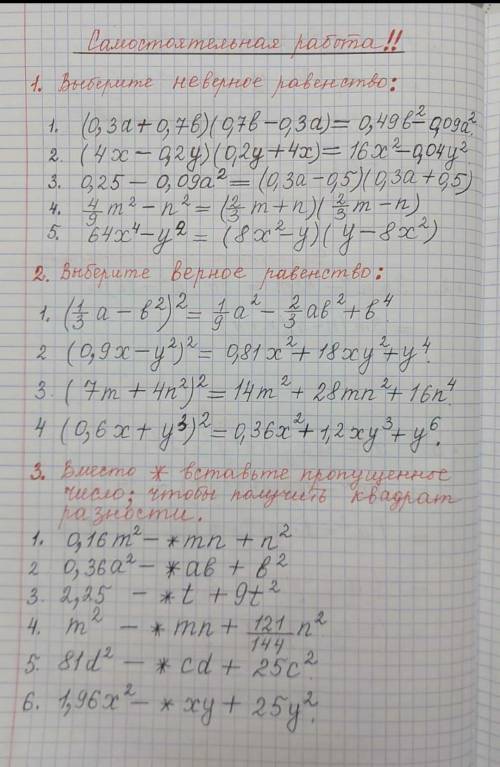 Самостоятельная работа!!
1. Выберите неверное равенство:
1. (0,3a + 0,7b)(0,7b − 0,3a) = 0,49b² − 0,09a².
2. (4x − 0,2y)(0,2y + 4x) = 16x² − 0,04y²
3. 0,25 − 0,09a² = (0,3a − 0,5)(0,3a + 0,5)
4. 4/9 m² − n² = (2/3 m + n)(2/3 m − n)
5. 64x⁴ − y² = (8x² − y)(y − 8x²)
2. Выберите верное равенство:
1. (1/3 a − b²)² = 1/9 a² − 2/3 ab² + b⁴
2 (0,9x − y²)² = 0,81x² + 18xy² + y⁴.
3. (7m + 4n²)² = 14m² + 28mn² + 16n⁴.
4 (0,6x + y³)² = 0,36x² + 1,2xy³ + y⁶.
3. Вместо * вставьте пропущенное
число, чтобы получить квадрат
разности.
1. 0,16m² − *mn + n²
2 0,36a² − *ab + b²
3. 2,25 − *t + 9t²
4. m² − *mn + 121/144 n²
5. 81d² − *cd + 25c².
6. 1,96x² − *xy + 25y².